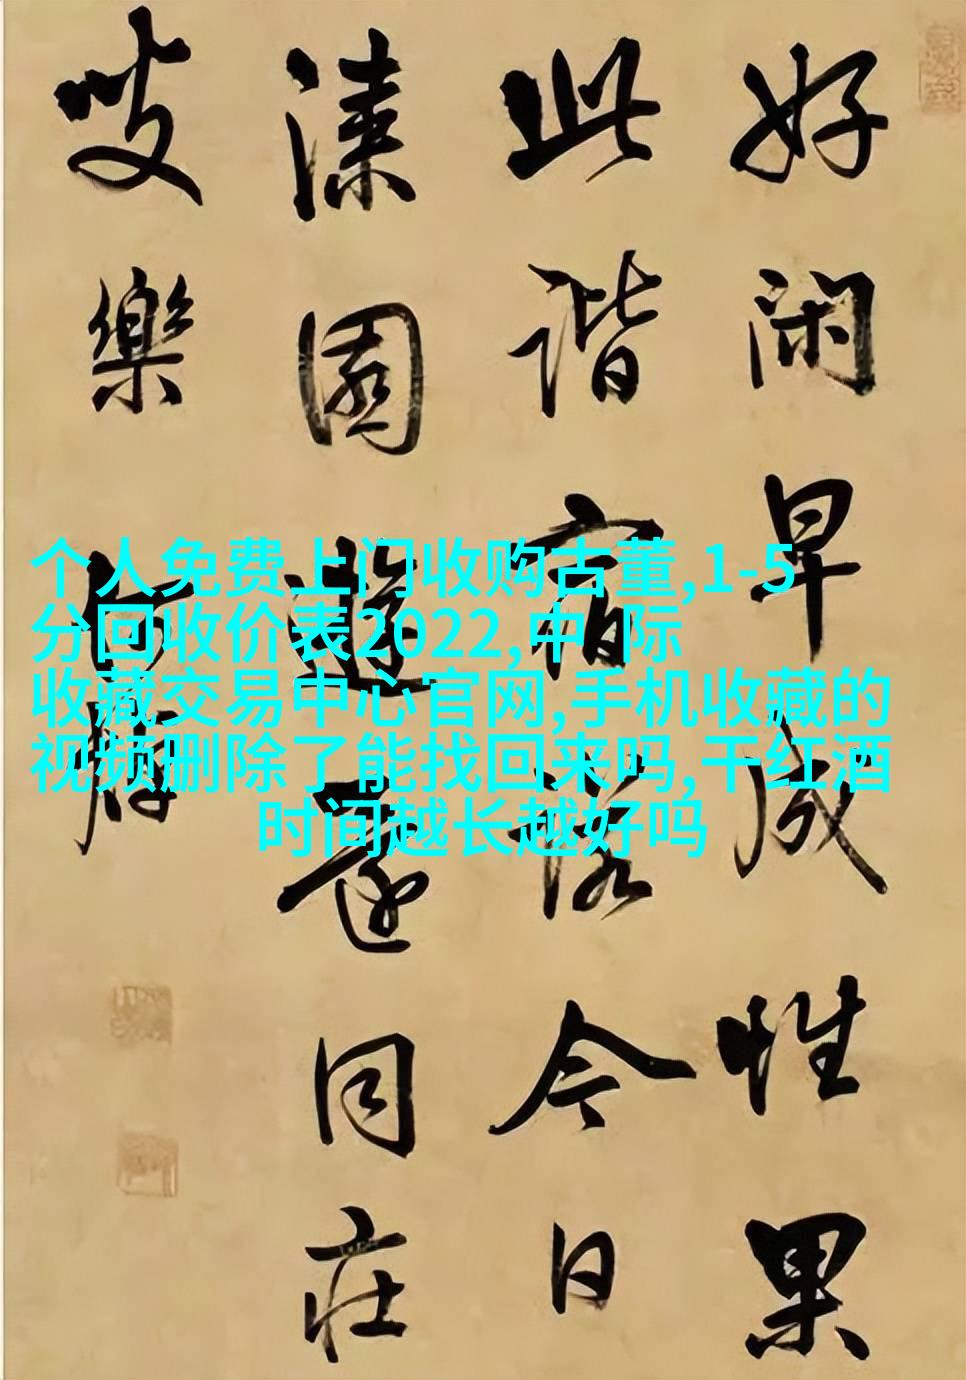 好闲早成性果
此谐宿诺今日
漆園遊還同庄
叟樂
个人免费上门收购古董,1-5
分回收价表2022,中 际
收藏交易中心官网,手机收藏的
视频删除了能找回来吗,干红酒
时间越长越好吗